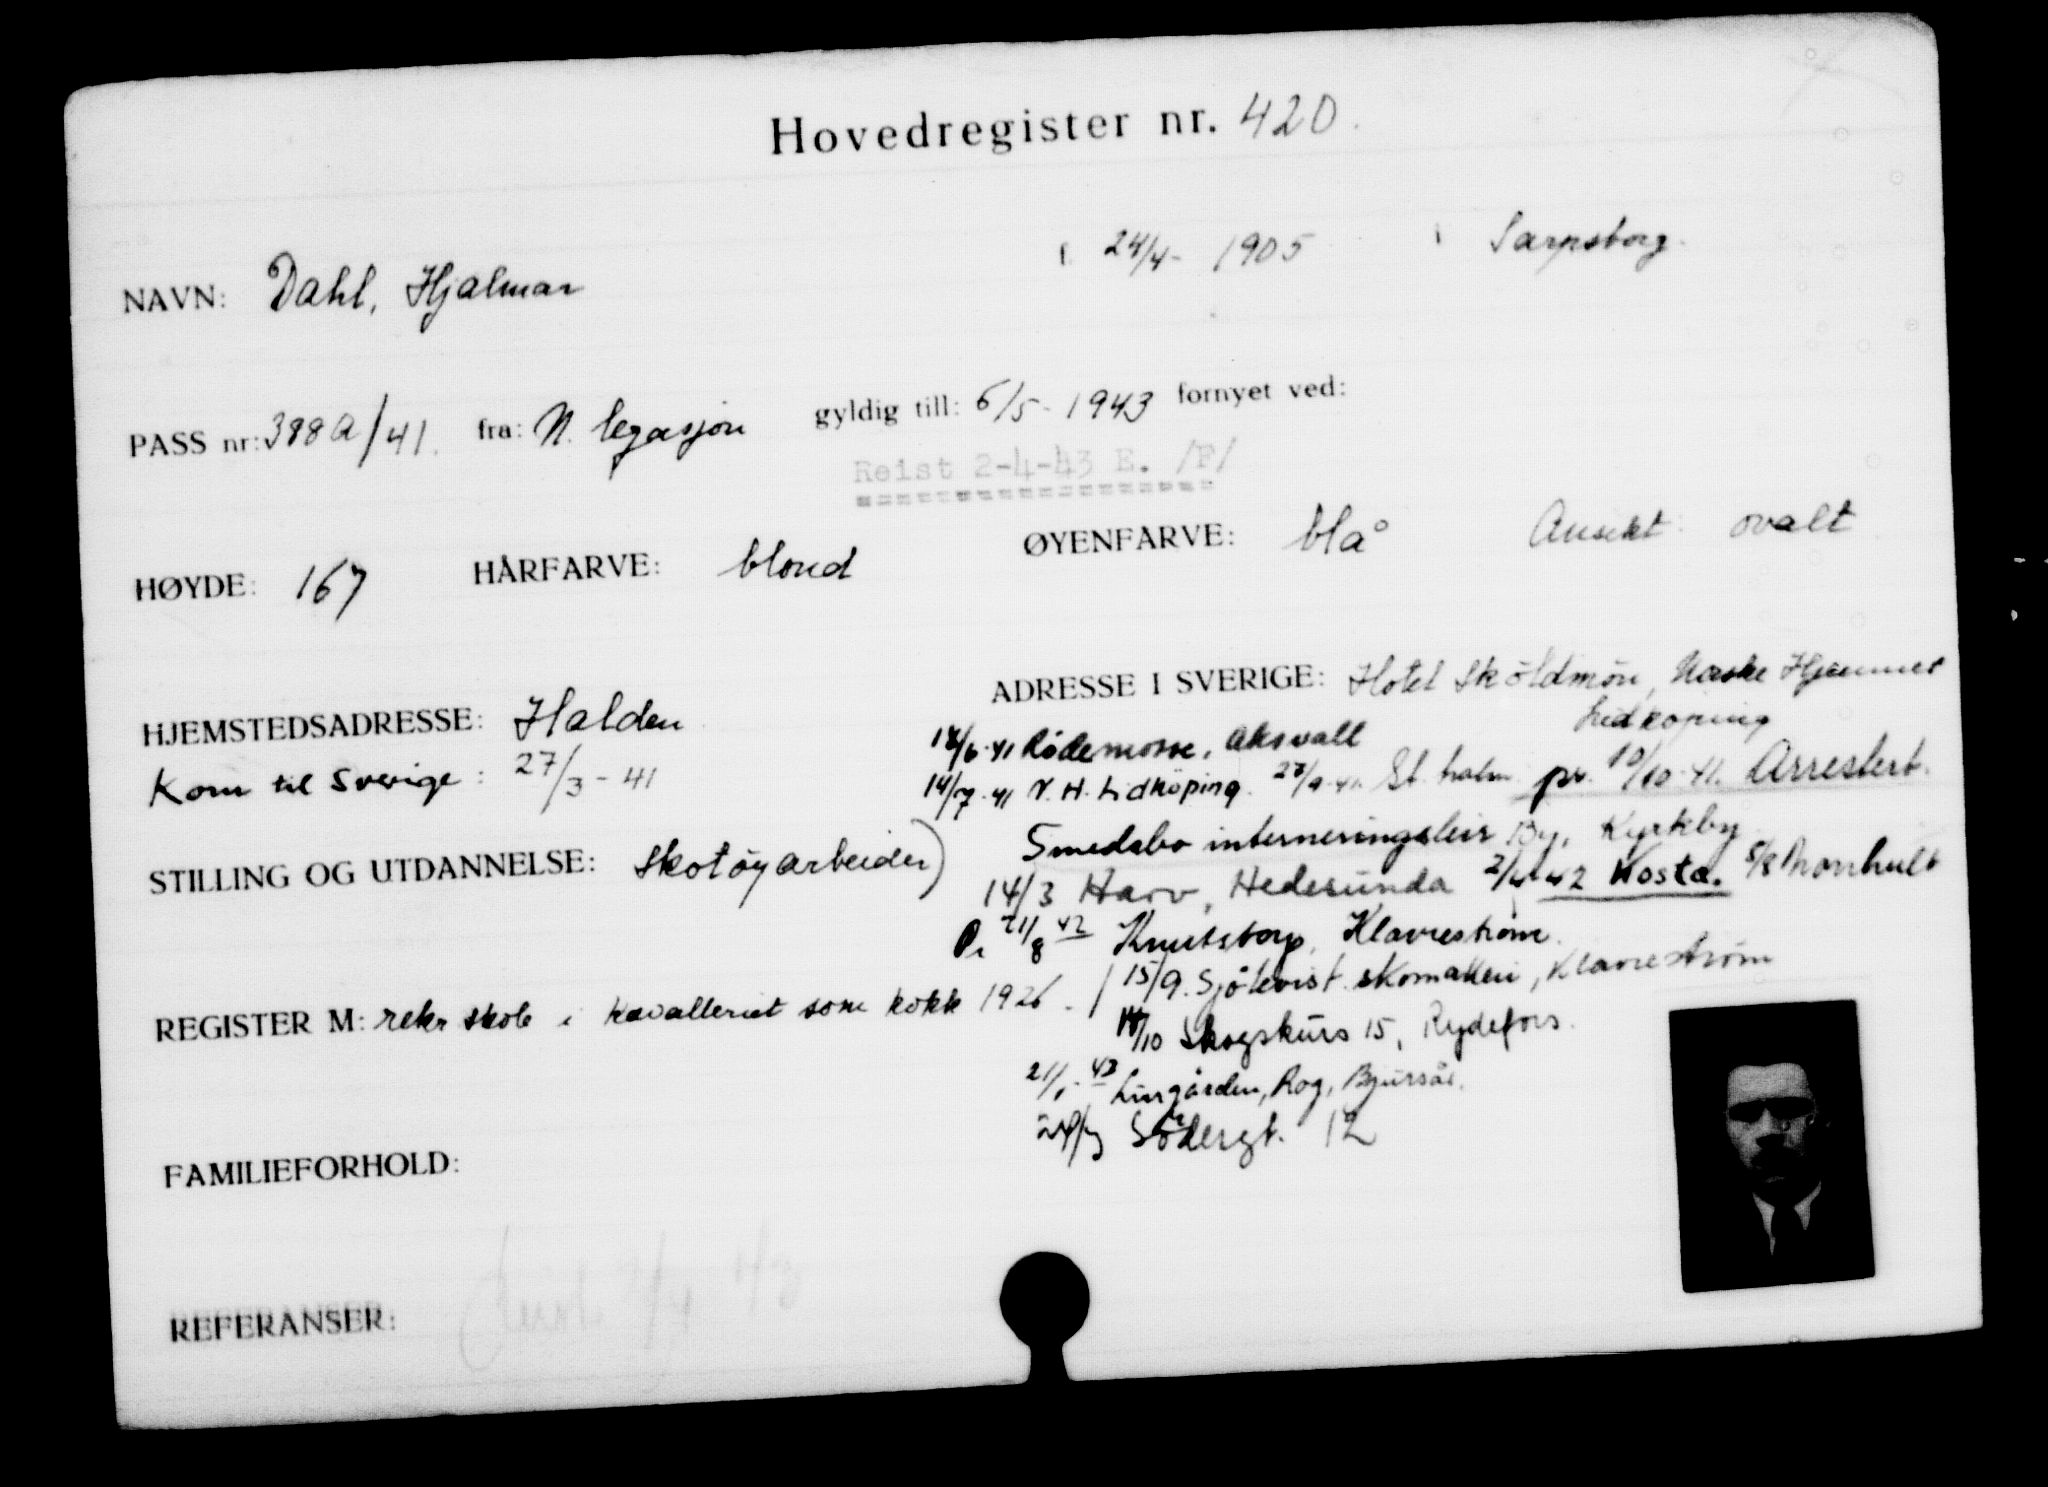 Hovedregister nr. 420.
NAVN: Dahl, Hjalmar f. 24/4 - 1905 i Sarpsborg.
PASS nr: 388a/41. fra: N. legasjon gyldig till: 6/5 - 1943 fornyet ved:
Reist 2-4-43 E. /F/
HØYDE: 167 HÅRFARVE: blond ØYENFARVE: blå Ansikt: ovalt
HJEMSTEDSADRESSE: Halden
Kom til Sverige: 27/3 - 41
STILLING OG UTDANNELSE: Skotøyarbeider)
REGISTER M: rekr skole i Kavalleriet som kokk 1926.
FAMILIEFORHOLD:
REFERANSER:
ADRESSE I SVERIGE: Hotel Sköldmön, Norske Hjemmet
Lidköping
18/6-41 Rådemosse, Axvall
14/7-41 N. H. Lidköping. 27/9-41. St.holm pr. 10/10-41. Arrestert.
Smedsbo interneringsleir By, Kyrkby
14/3 Harv, Hedesunda 2/4-42 Kosta. 5/8
21/8 42 Knutstorp, Klavreström.
15/9. Sjökvist skomakeri, Klavreström
/10 Skogskurs 15, Rydefors.
21/1-43 Lingården, Rog, Bjursås.
Södergt. 12